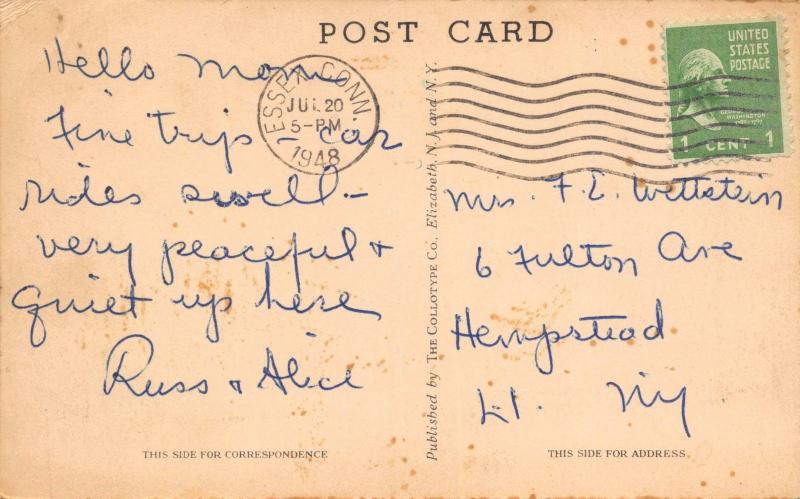 POST CARD
Hello Mom
Fine trip - car
rides swell -
very peaceful +
quiet up here
Russ + Alice
THIS SIDE FOR CORRESPONDENCE
ESSEX CONN
JUL 20
5-PM
1948
Published by THE COLLOTYPE Co., Elizabeth, N. J. and N. Y.
UNITED
STATES
POSTAGE
GEORGE
WASHINGTON
1 CENT 1
Mrs. F. E. Wettstein
6 Fulton Ave
Hempstead
L.I. NY
THIS SIDE FOR ADDRESS.